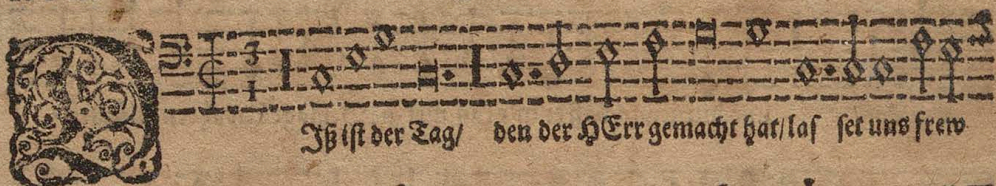 3
1
DIß iſt der Tag/ den der HErr gemacht hat/ laſ ſet uns frew